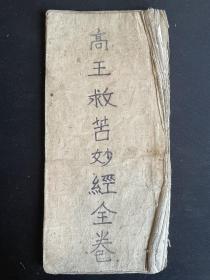 高王救苦妙經全卷